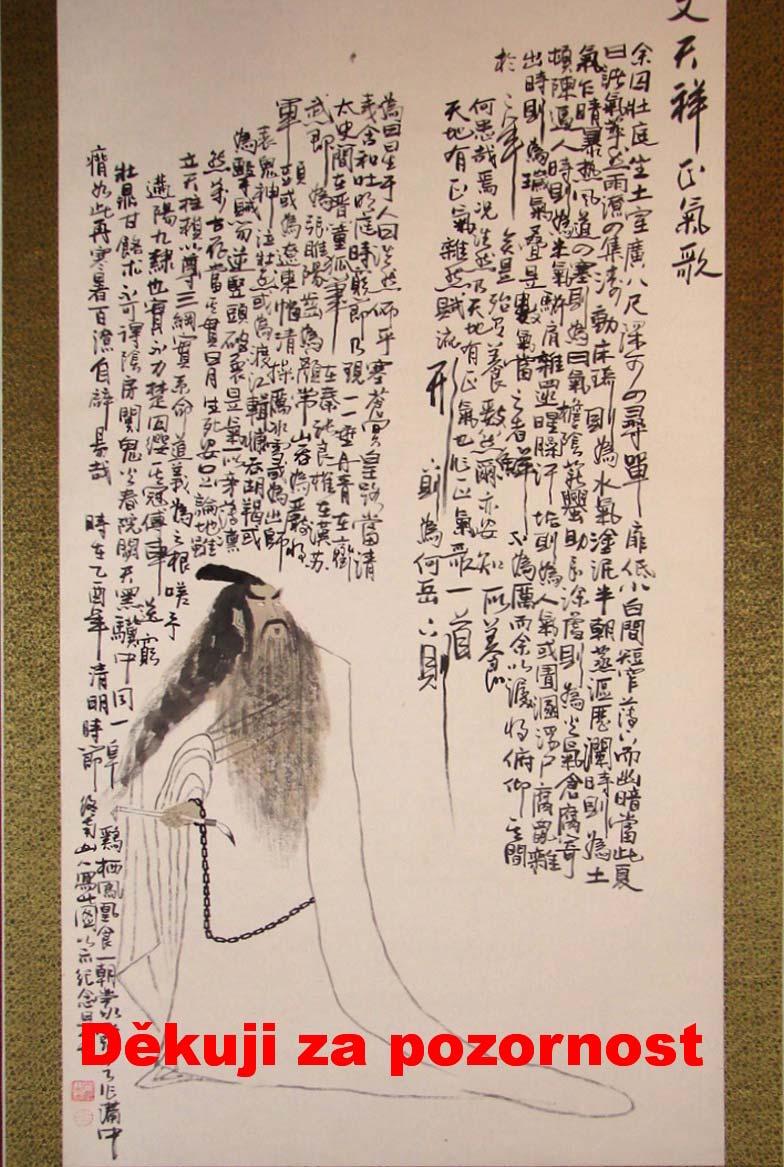 文天祥正氣歌
余囚牡庭坐土室廣八尺深可四尋單扉低小白間短窄而幽暗當此夏
日諸氣萃然雨潦四集浮動床則為水氣塗泥半朝蒸漚歷瀾時則為土
氣乍晴暴熱風道四塞則為日氣檐陰薪爨助長則為火氣倉腐寄
頓陳逼人時則為米氣駢肩雜遝腥臊汗垢則為人氣或圊溷浮尸腐鼠雜
出時則為瑞氣疊是數氣當之者鮮不為厲而余以俯仰其間
於年矣是殆有養致然爾亦安知所養
何患哉焉況浩然乃天地有正氣也作正氣歌一首
天地有正氣雜然賦流形則為何岳下則
為曰星于人曰浩然沛乎塞蒼冥皇路當清
夷含和吐明庭時窮節乃現一一垂丹青在齊
太史簡在晉董狐筆在秦張良椎在漢蘇
武節為張睢陽齒為顏常山舌為嚴將
軍頭或為遼東帽清操厲冰雪或為出師
表鬼神泣壯烈或為渡江楫慷吞胡羯或
為擊賊笏逆豎頭破裂是氣所旁薄凜
然萬古存當其貫日月生死安足論地維
立天柱賴以尊三綱實系命道義為之根嗟予
遘陽九隸也實不力楚囚纓其冠傳車送窮
鼎甘飴求不可得陰房闃鬼火春院閟天黑驥牛同一皁雞栖鳳凰食一朝蒙作溝中
瘠如此再寒暑百沴自辟易哉時在乙酉年清明時節山人寫此圖以示紀念
Děkuji za pozornost